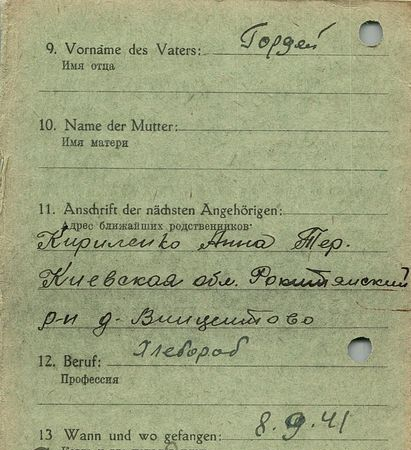 9. Vorname des Vaters: Гордей
Имя отца
10. Name der Mutter:
Имя матери
11. Anschrift der nächsten Angehörigen:
Адрес ближайших родственников:
Кириленко Анна Тер.
Киевская обл. Рокитянский
р-н д.
12. Beruf: Хлебороб
Профессия
13 Wann und wo gefangen: 8.9.41